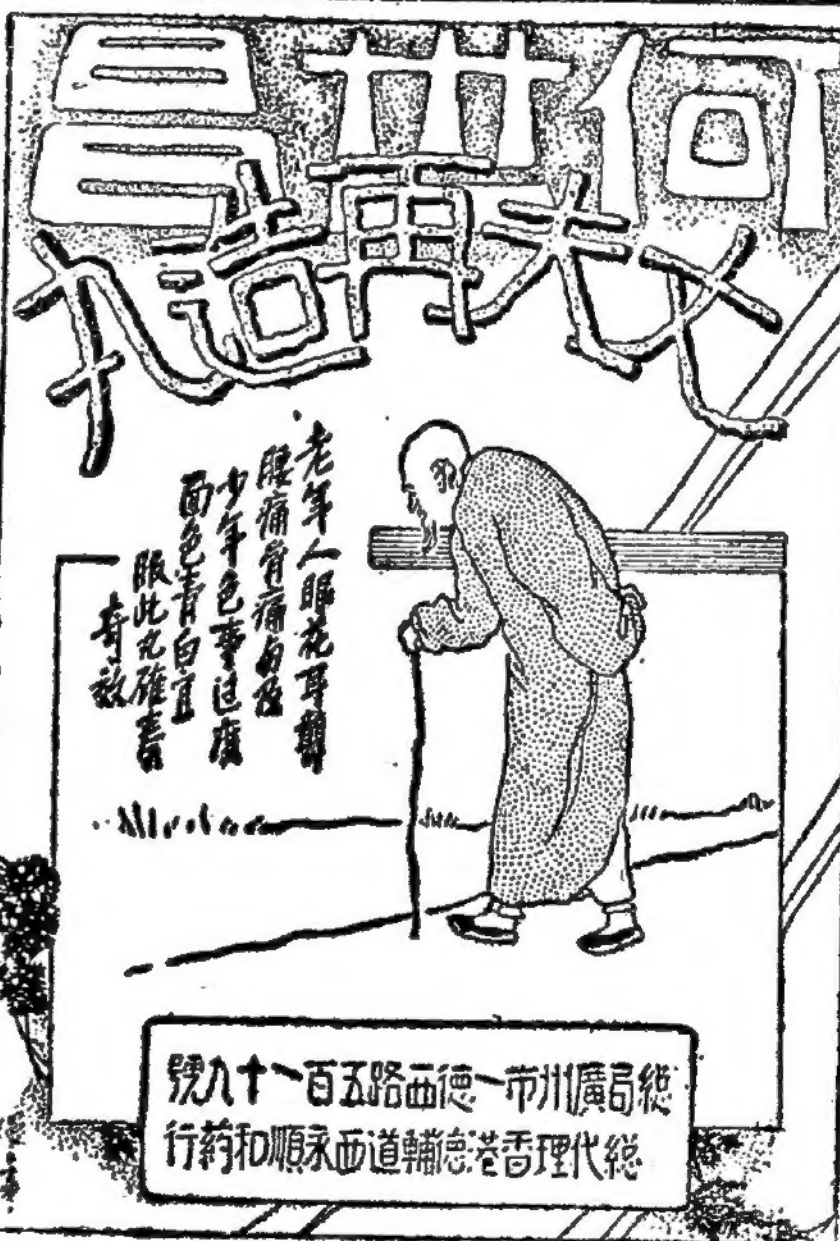 何世昌
丈夫再造丸
老年人眼花耳聾
腰痛骨痛與及
少年色事過度
面色青白宜
服此丸確有
奇效
總局廣州市一德西路五百一十九號
總代理香港德輔道西永順和葯行